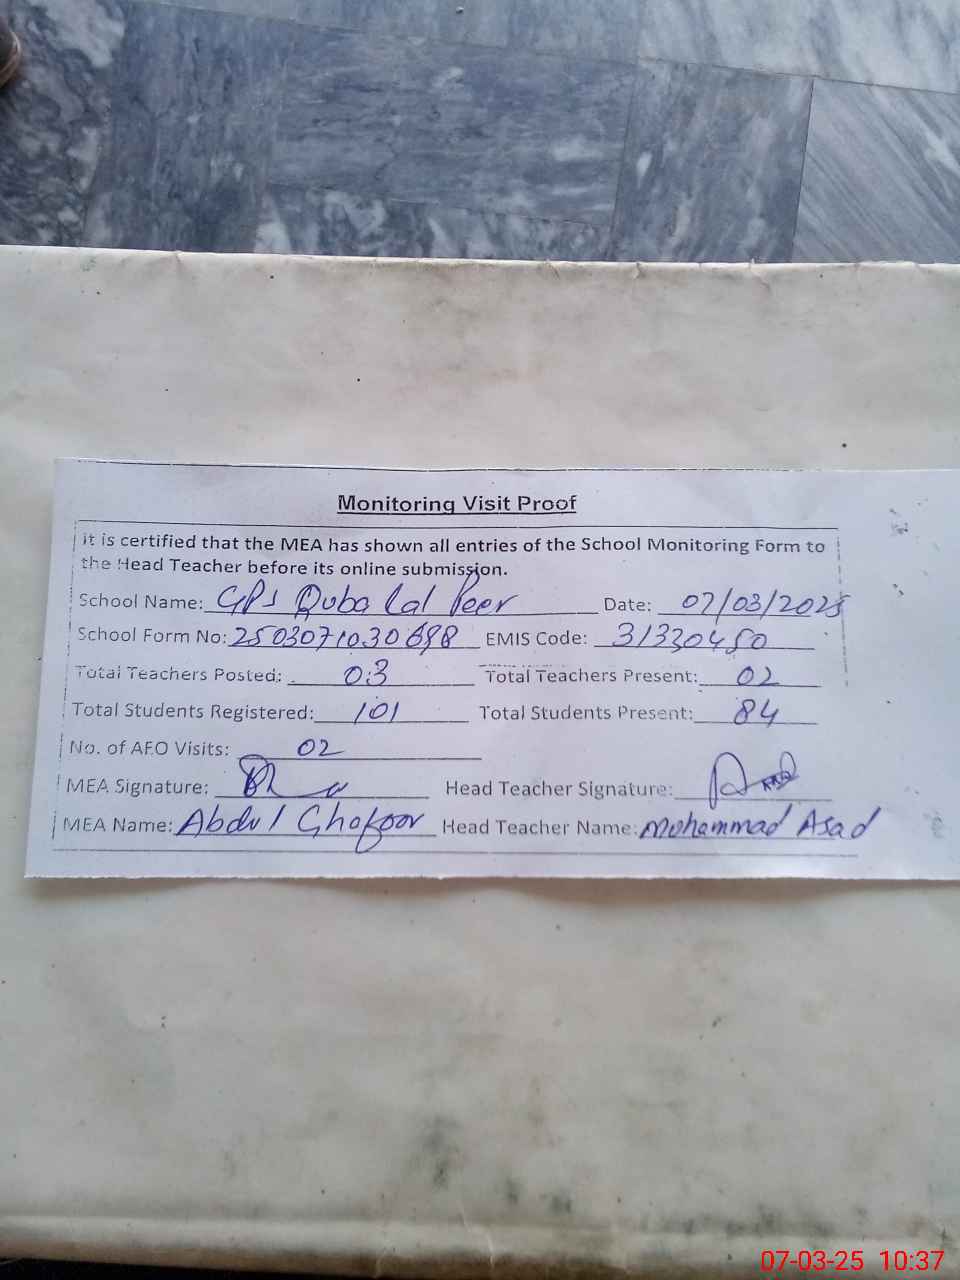 Monitoring Visit Proof
It is certified that the MEA has shown all entries of the School Monitoring Form to
the Head Teacher before its online submission.
School Name: GPS Quba Lal Peer Date: 07/03/2025
School Form No: 2503071030698 EMIS Code: 31330450
Total Teachers Posted: 03 Total Teachers Present: 02
Total Students Registered: 101 Total Students Present: 84
No. of AEO Visits: 02
MEA Signature: Head Teacher Signature:
MEA Name: Abdul Ghafoor Head Teacher Name: Mohammad Asad
07-03-25 10:37